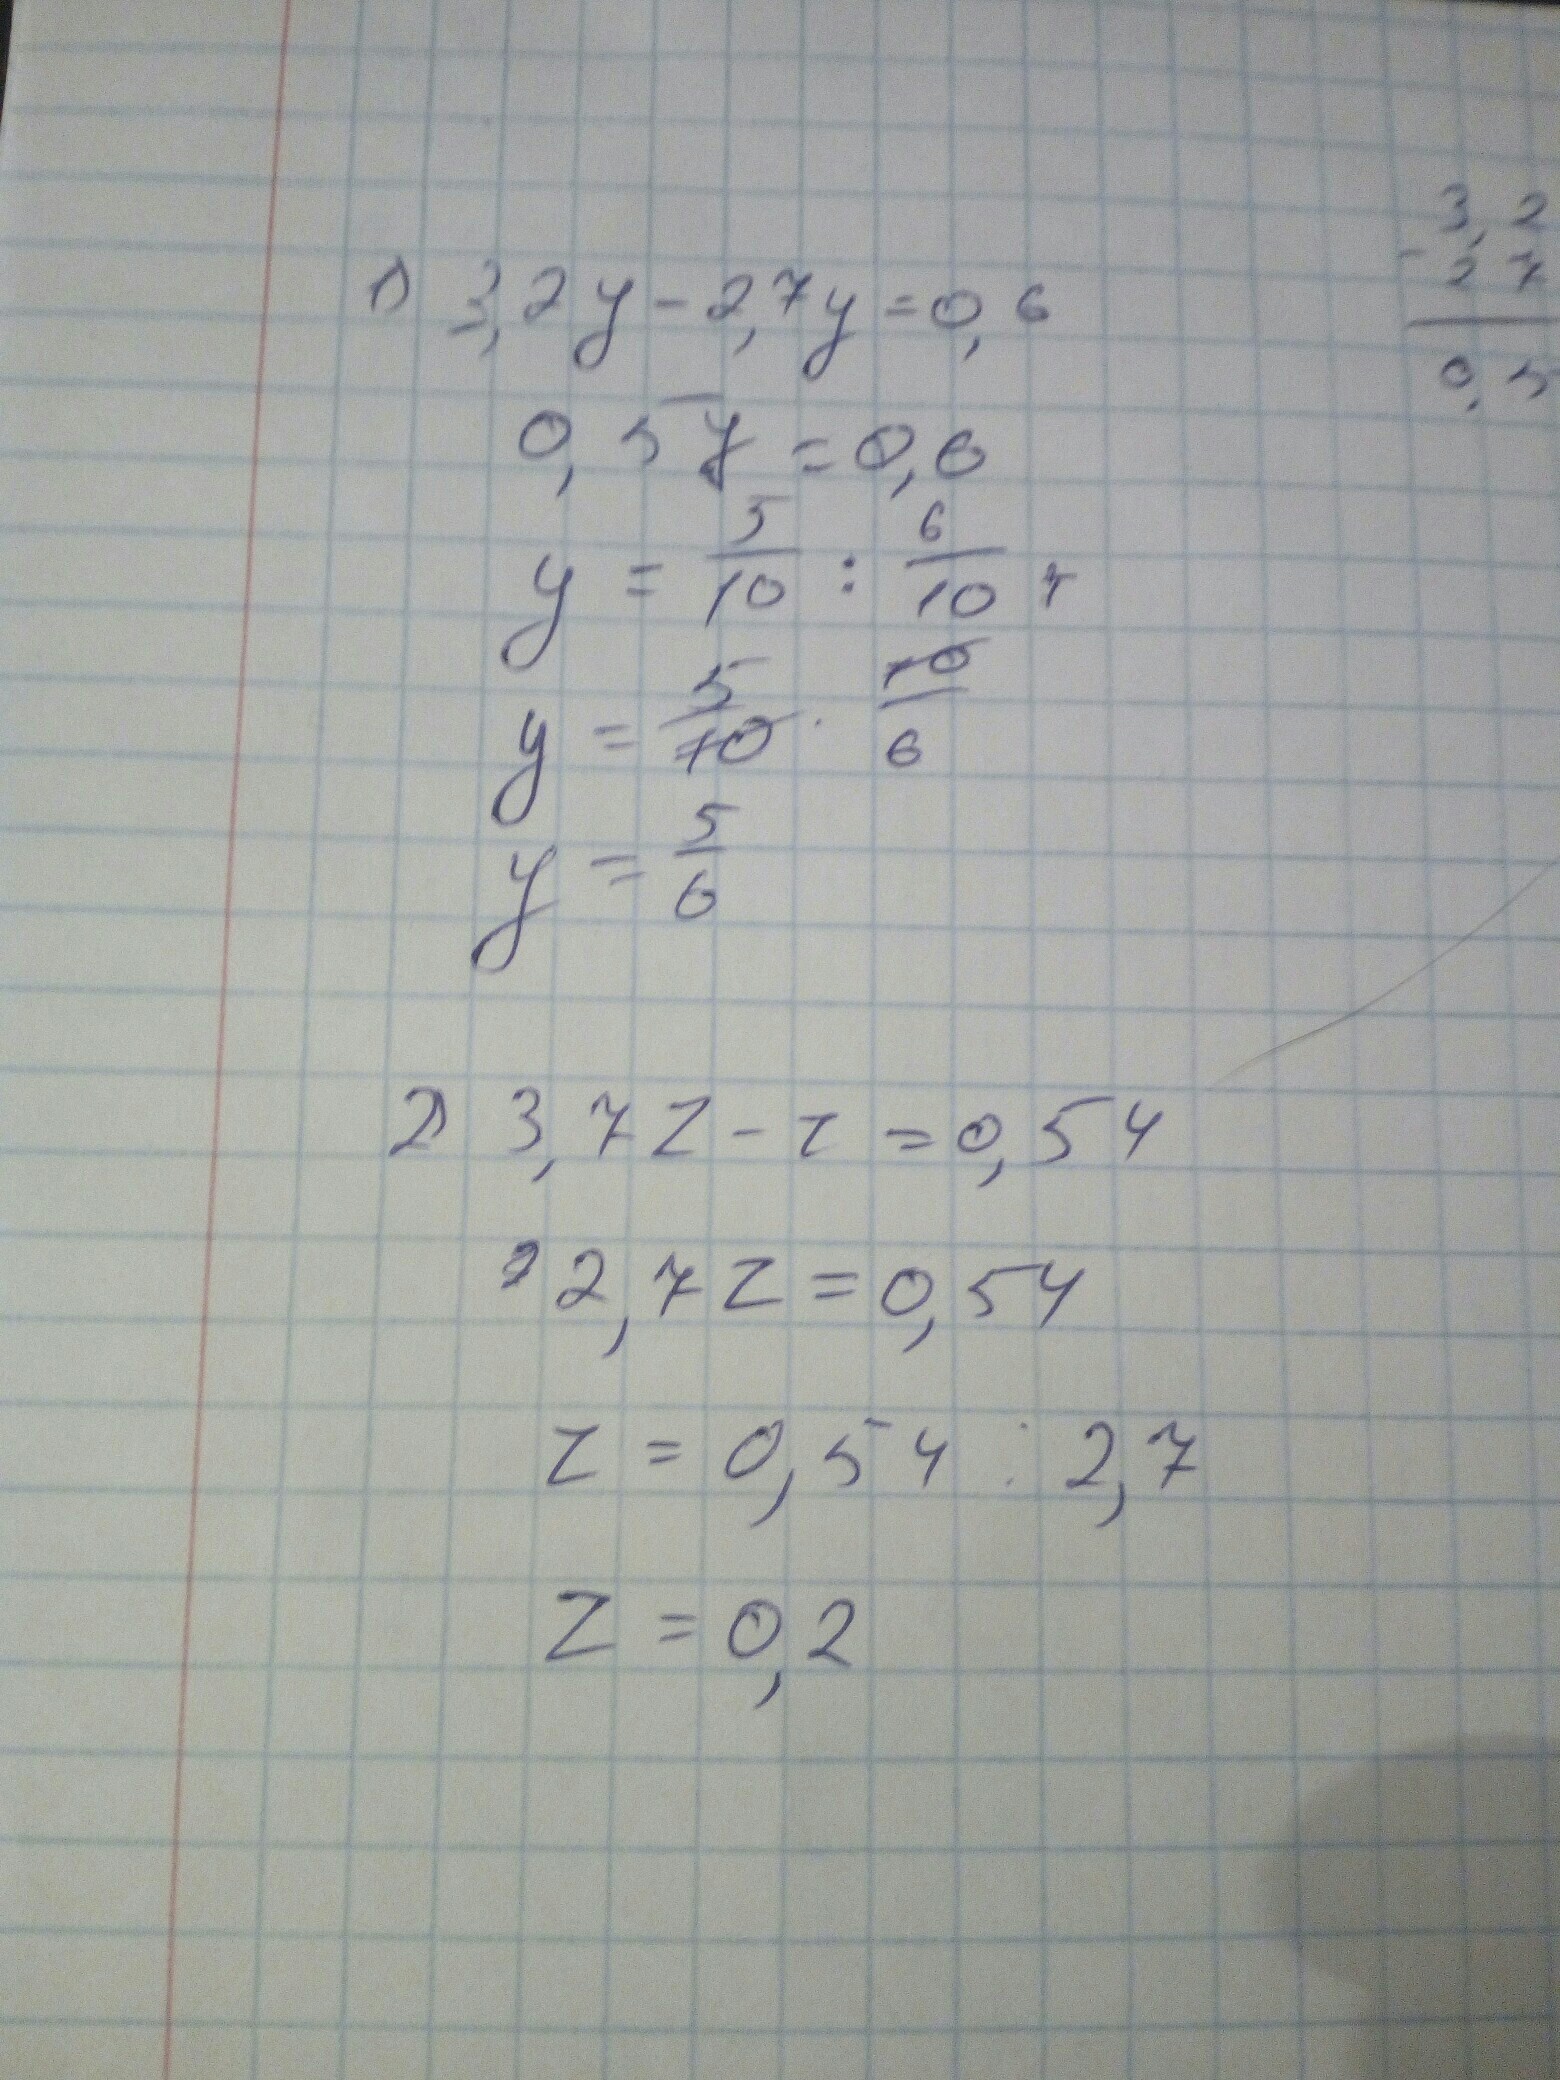 1) 3,2y - 2,7y = 0,6
0,5y = 0,6
y = 5/10 : 6/10
y = 5/10 · 10/6
y = 5/6
2) 3,7z - z = 0,54
2,7z = 0,54
z = 0,54 : 2,7
z = 0,2
3,2
- 2 7
0,5